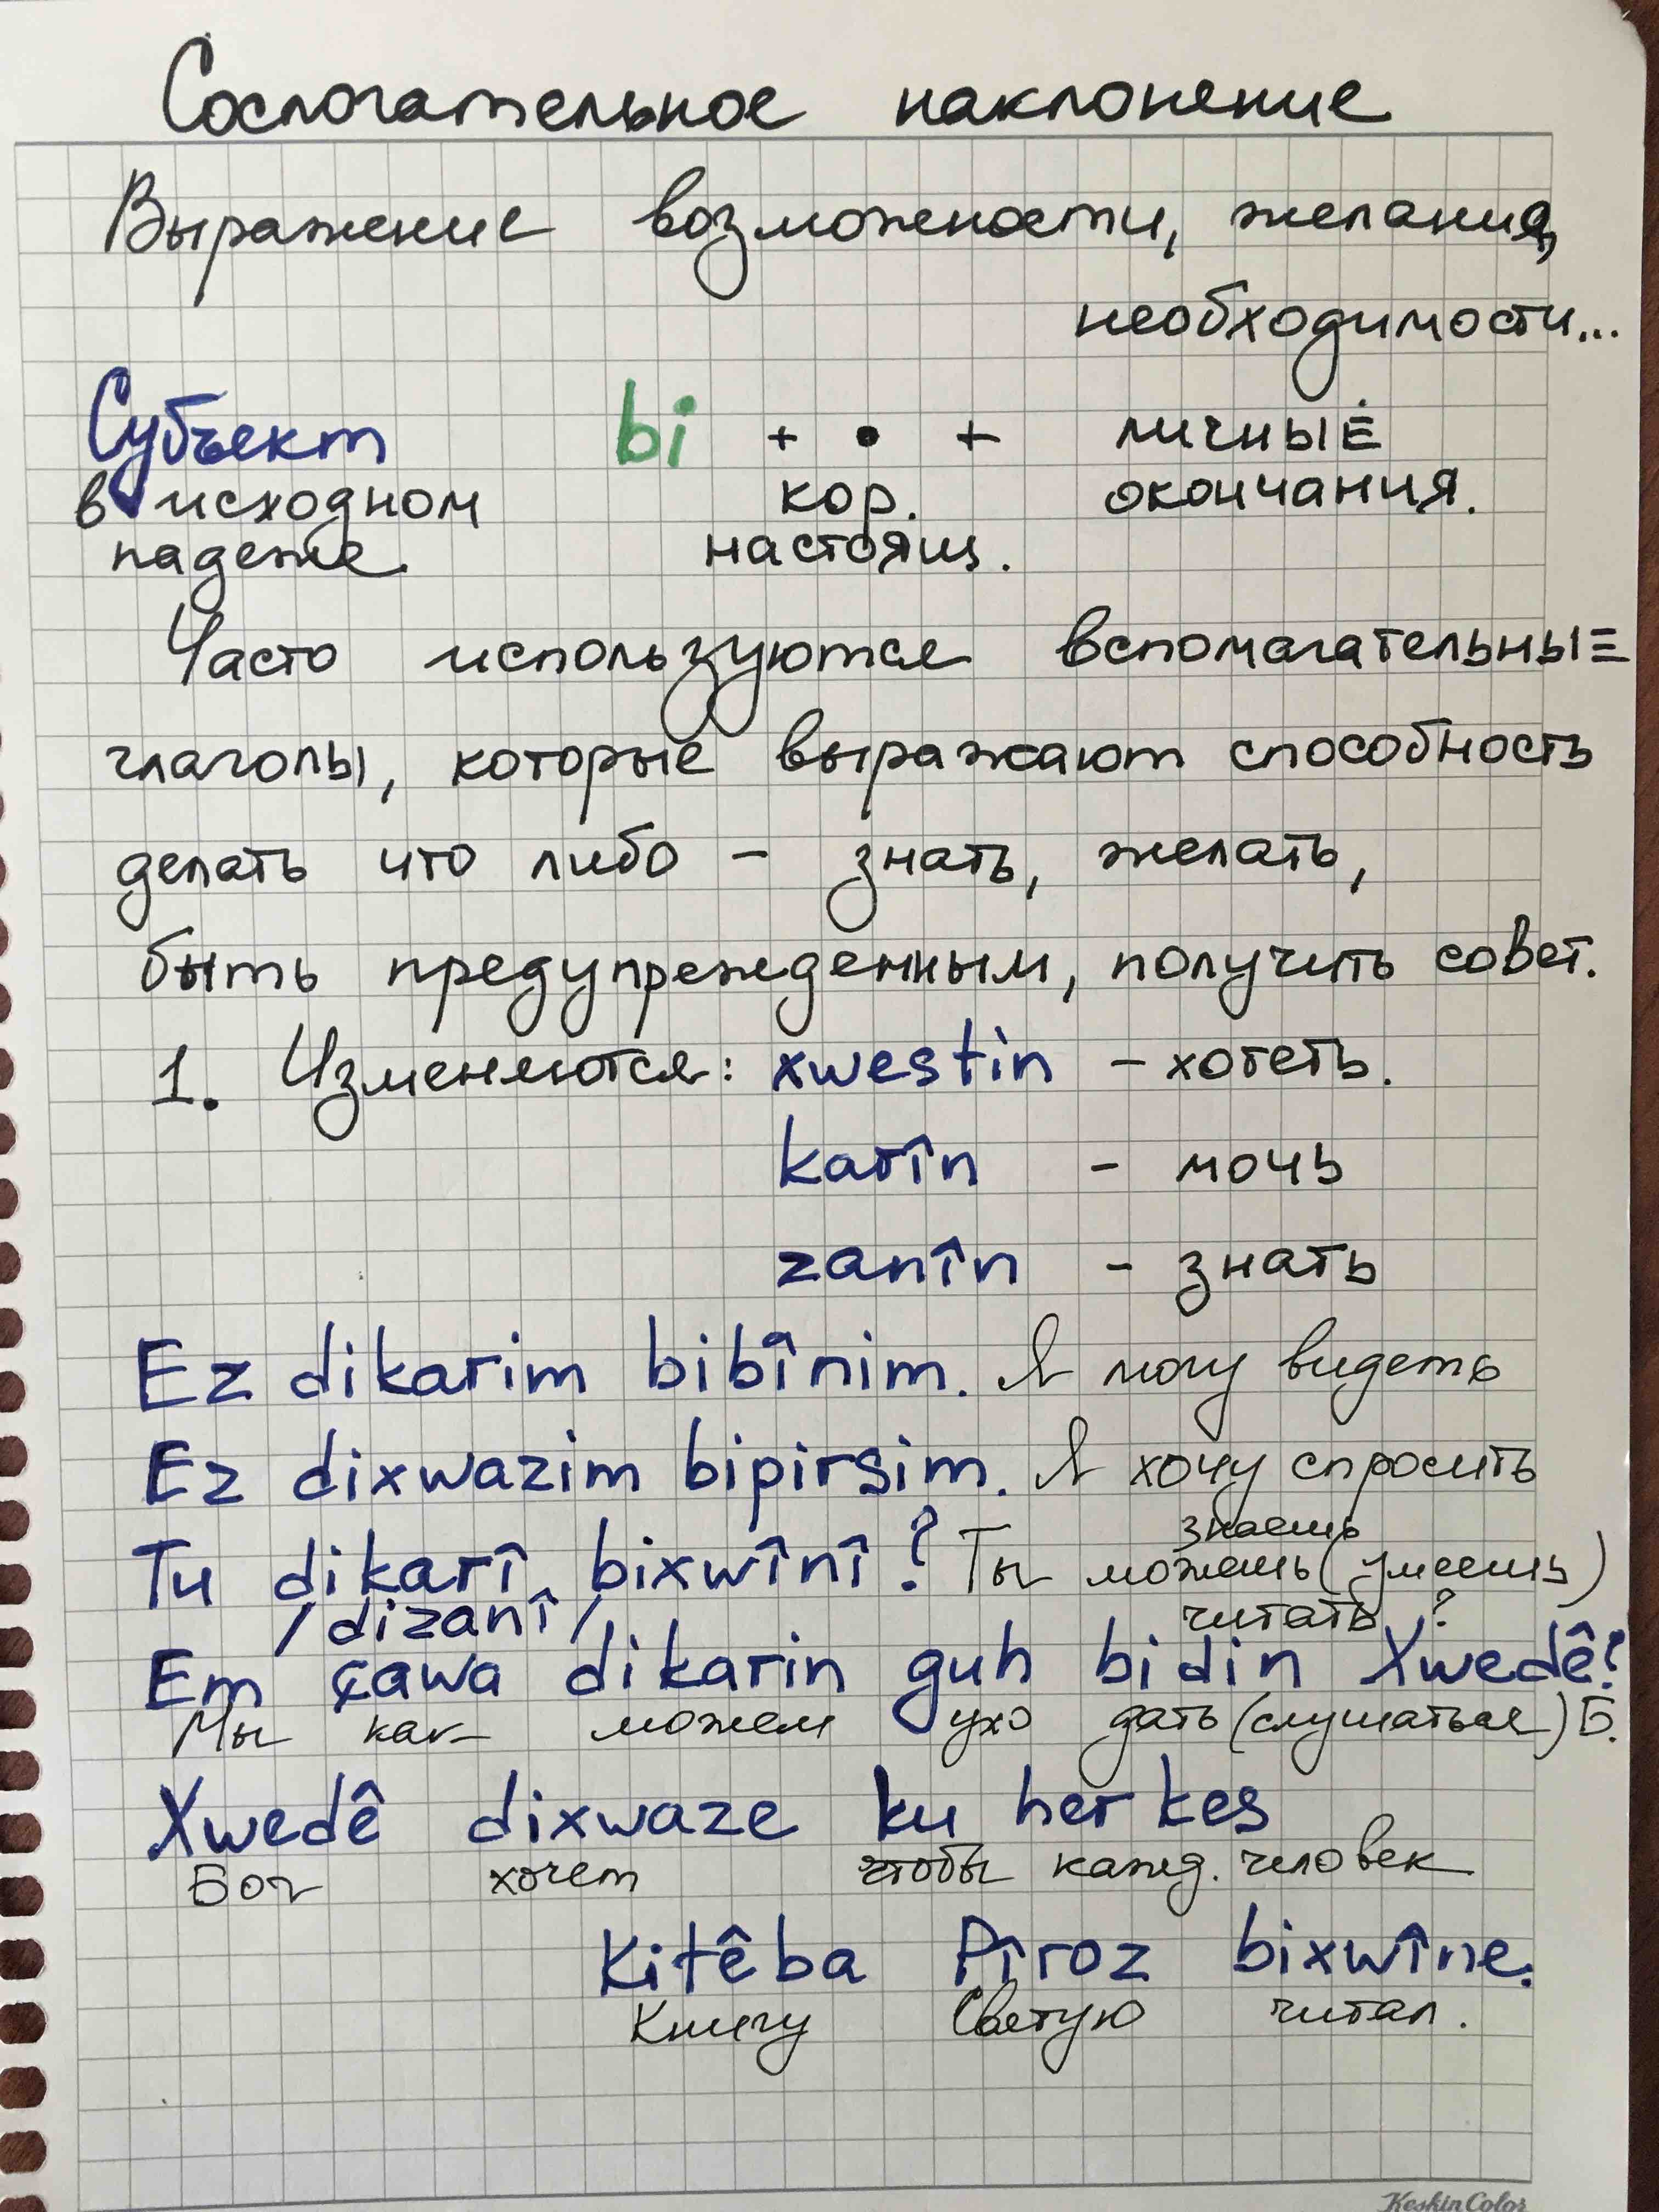 Сослогательное наклонение
Выражение возможности, желания,
необходимости...
Субъект bi + • + личные
в исходном кор. окончания.
падеже. настоящ.
Часто используются вспомагательные
глаголы, которые выражают способность
делать что либо - знать, желать,
быть предупрежденным, получить совет.
1. Изменяются: xwestin - хотеть.
karîn - мочь
zanîn - знать
Ez dikarim bibînim. Я могу видеть
Ez dixwazim bipirsim. Я хочу спросить
знаешь
Tu dikarî bixwînî? Ты можешь (умеешь)
/dizanî/ читать?
Em çawa dikarin guh bidin Xwedê?
Мы как можем ухо дать (слушаться) Б.
Xwedê dixwaze ku her kes
Бог хочет чтобы кажд. человек
Kitêba Pîroz bixwîne.
Книгу Святую читал.
KeskinColor